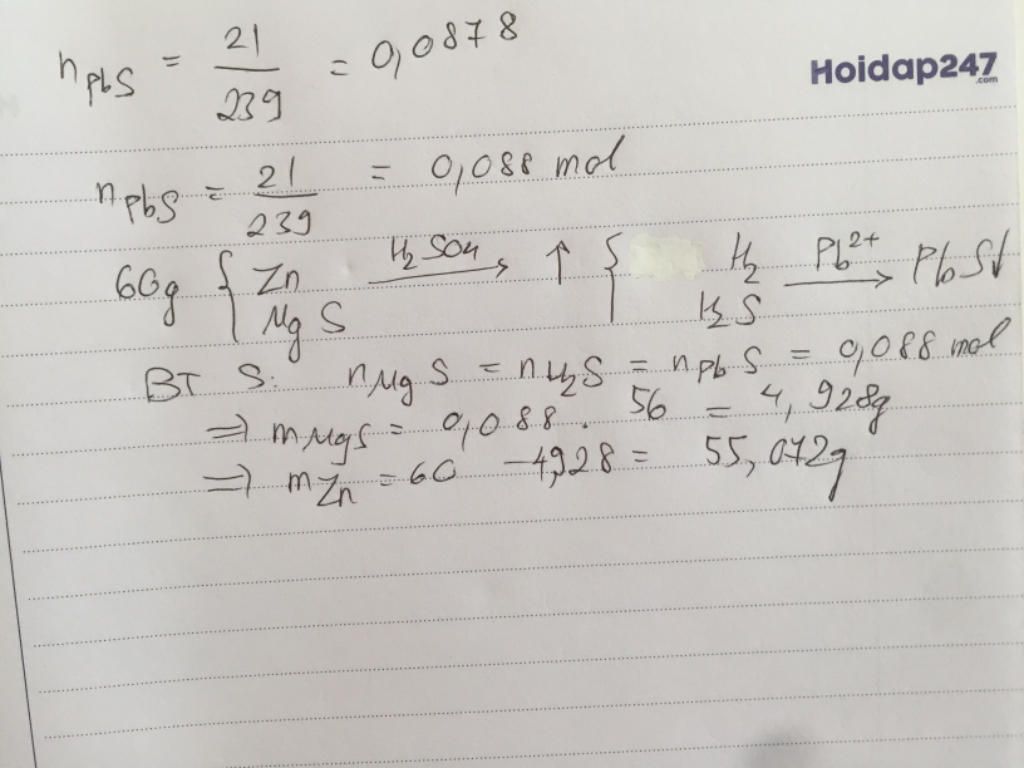 nPbS = 21/239 = 0,0878
Hoidap247.com
nPbS = 21/239 = 0,088 mol
60g { Zn MgS —H2SO4→ ↑ { H2 H2S —Pb2+→ PbS↓
BT S: nMgS = nH2S = nPbS = 0,088 mol
⇒ mMgS = 0,088 . 56 = 4,928g
⇒ mZn = 60 - 4,928 = 55,072g